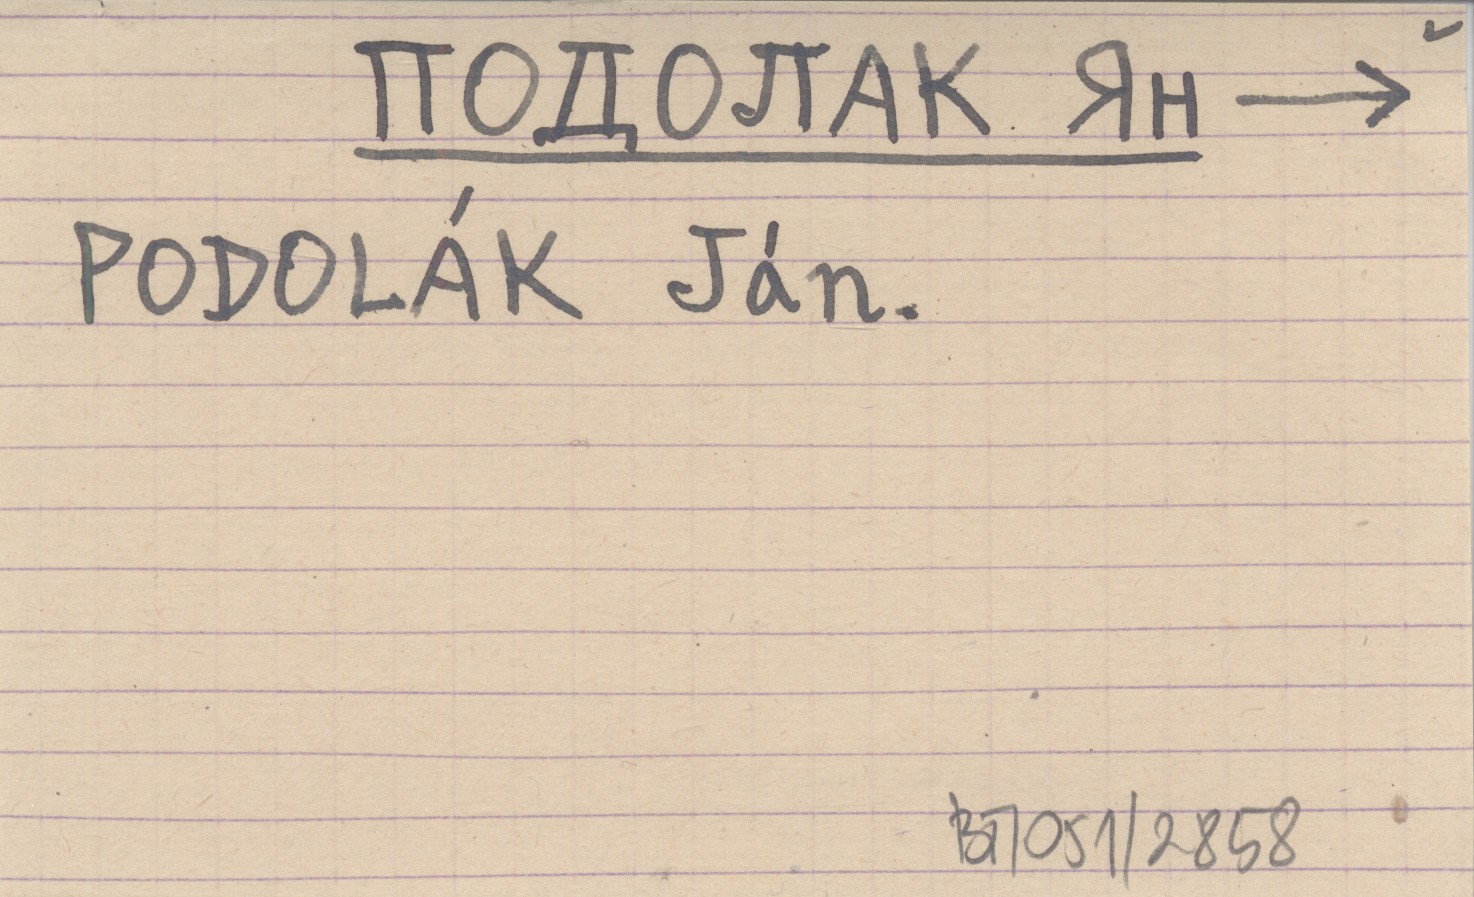 ПОДОЛАК Ян →
PODOLÁK Ján.
ВП051/2858